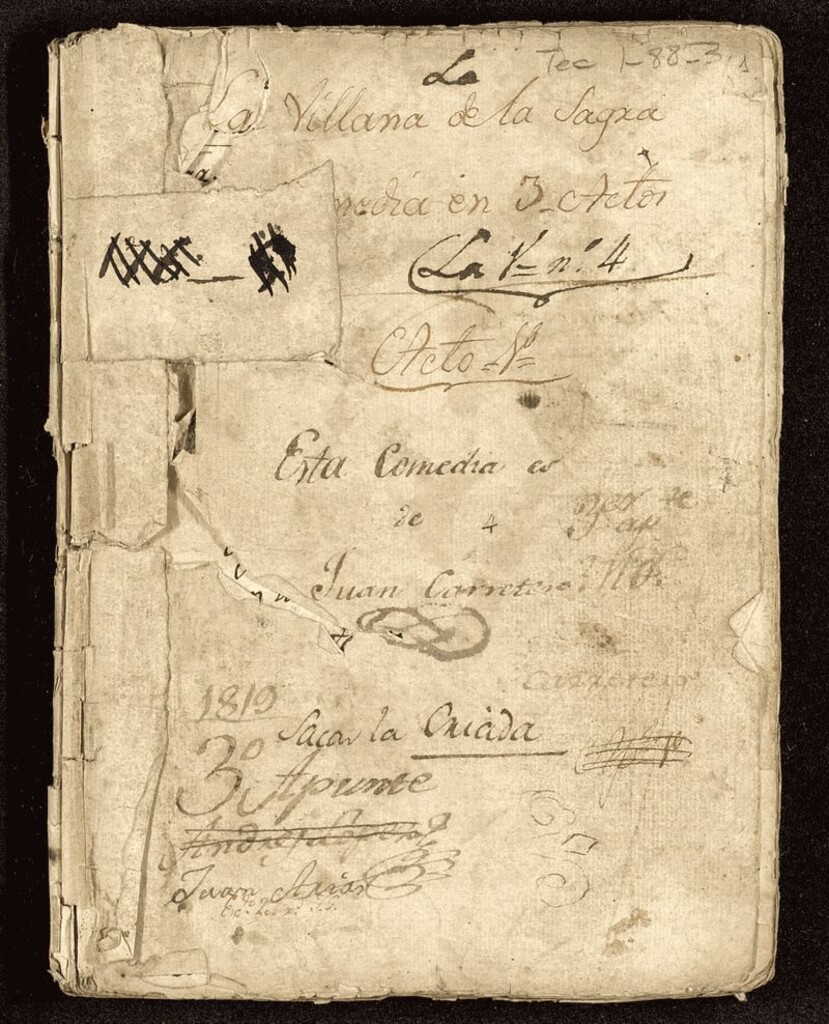 La
Tea 1-88-3,
La Villana de la Sagra
La
media en 3 Actos
La V= n.º 4
Acto 1º
Esta Comedia es
de 4
Juan Carretero
carretero
1819
Sacar la Criada
3º Apunte
Juan Arias